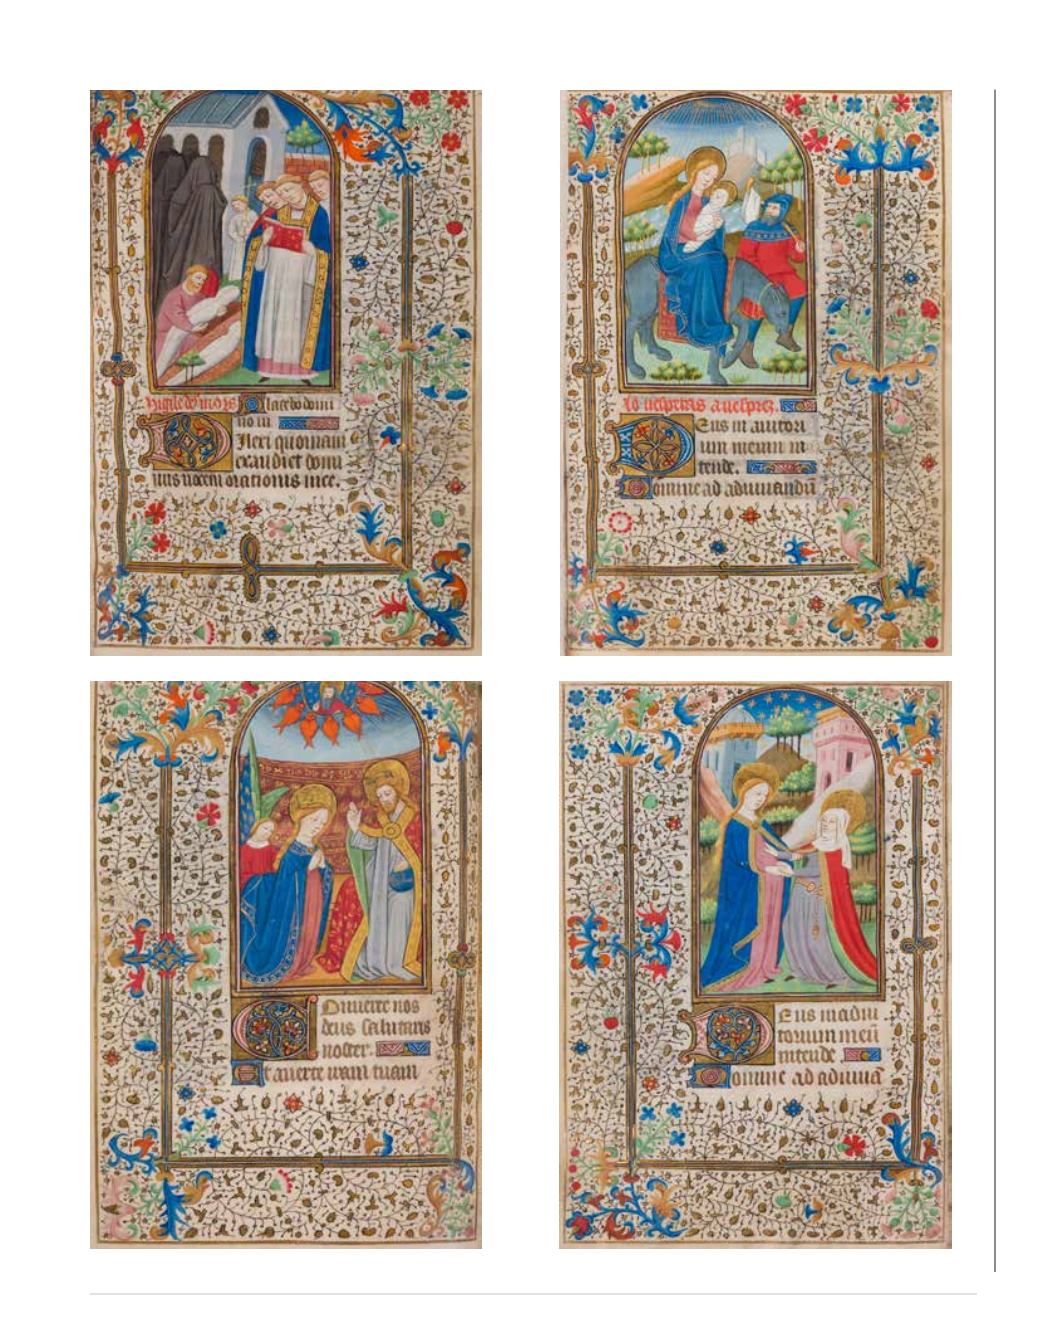 Vigile de mors Placebo domi
no in
Dilexi quoniam
exaudiet domi
nus vocem orationis mee.
Ad vesperas a vespres.
Deus in aiutori
um meum in
tende.
Domine ad adiuuandū
Conuerte nos
deus salutaris
noster.
Et auerte iram tuam
Deus in adiu
torium meū
intende
Domine ad adiuuā